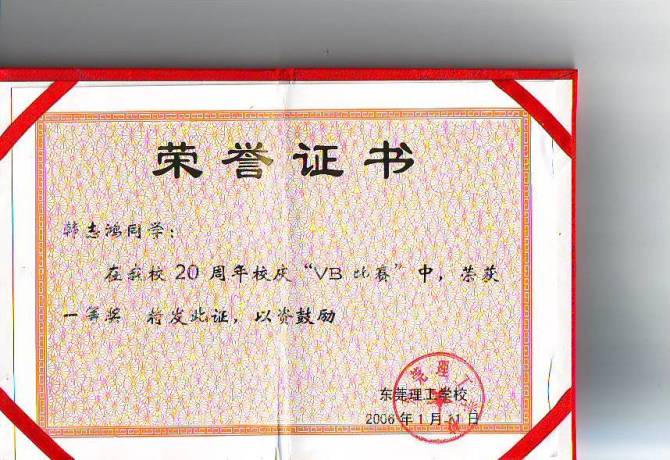 荣誉证书
韩志鸿同学：
在我校20周年校庆“VB比赛”中，荣获
一等奖 特发此证，以资鼓励
东莞理工学校
2006年1月11日